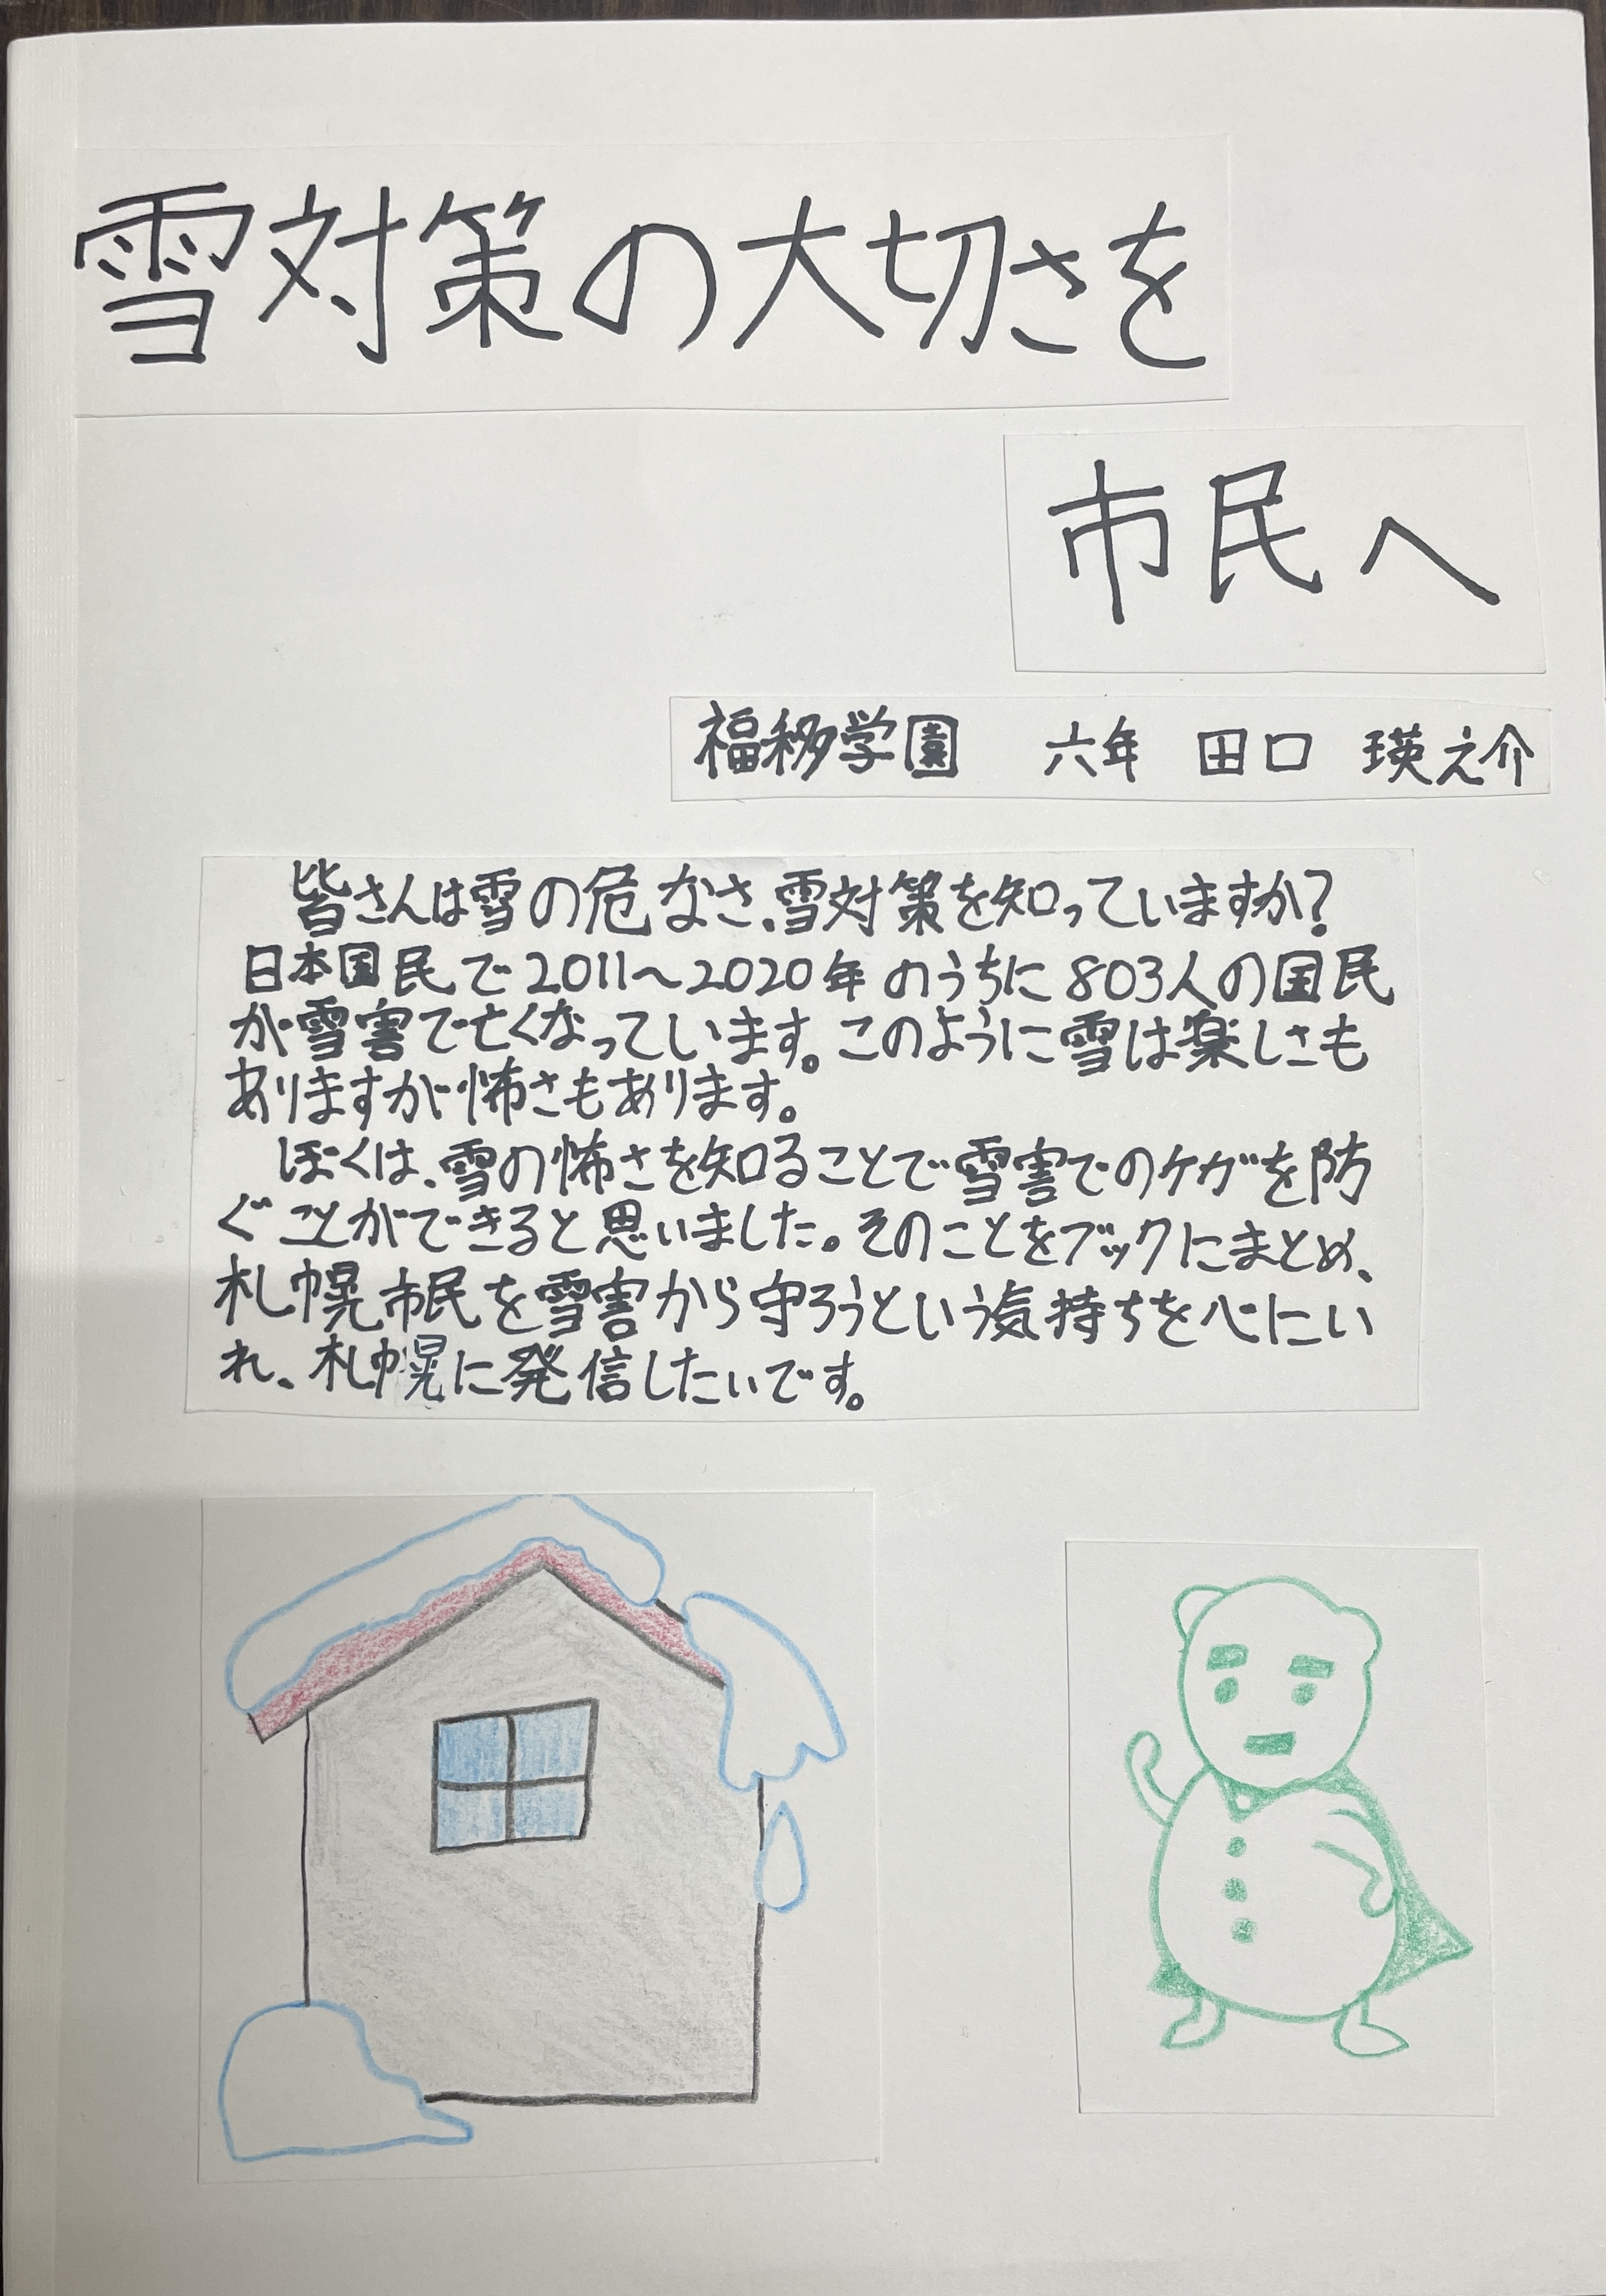 雪対策の大切さを
市民へ
福移学園 六年 田口 瑛之介
皆さんは雪の危なさ、雪対策を知っていますか?
日本国民で2011〜2020年のうちに803人の国民
が雪害で亡くなっています。このように雪は楽しさも
ありますが怖さもあります。
ぼくは、雪の怖さを知ることで雪害でのケガを防
ぐことができると思いました。そのことをブックにまとめ、
札幌市民を雪害から守ろうという気持ちを心にい
れ、札幌に発信したいです。